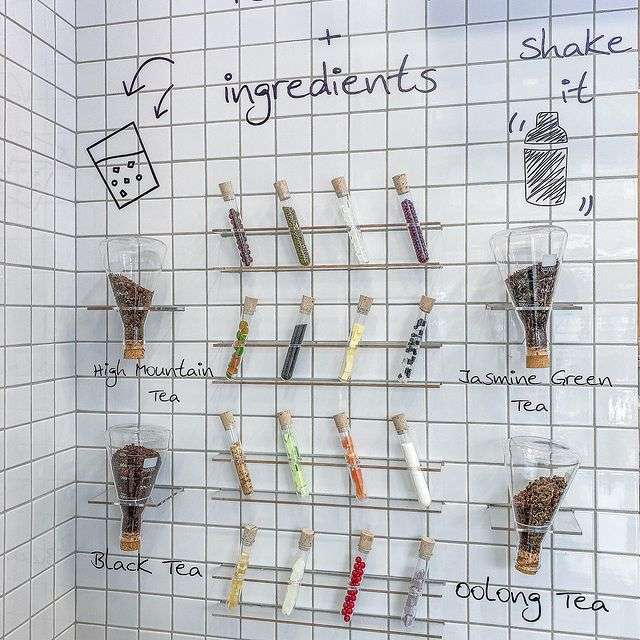 +
ingredients
shake
it
High Mountain
Tea
Jasmine Green
Tea
Black Tea
Oolong Tea